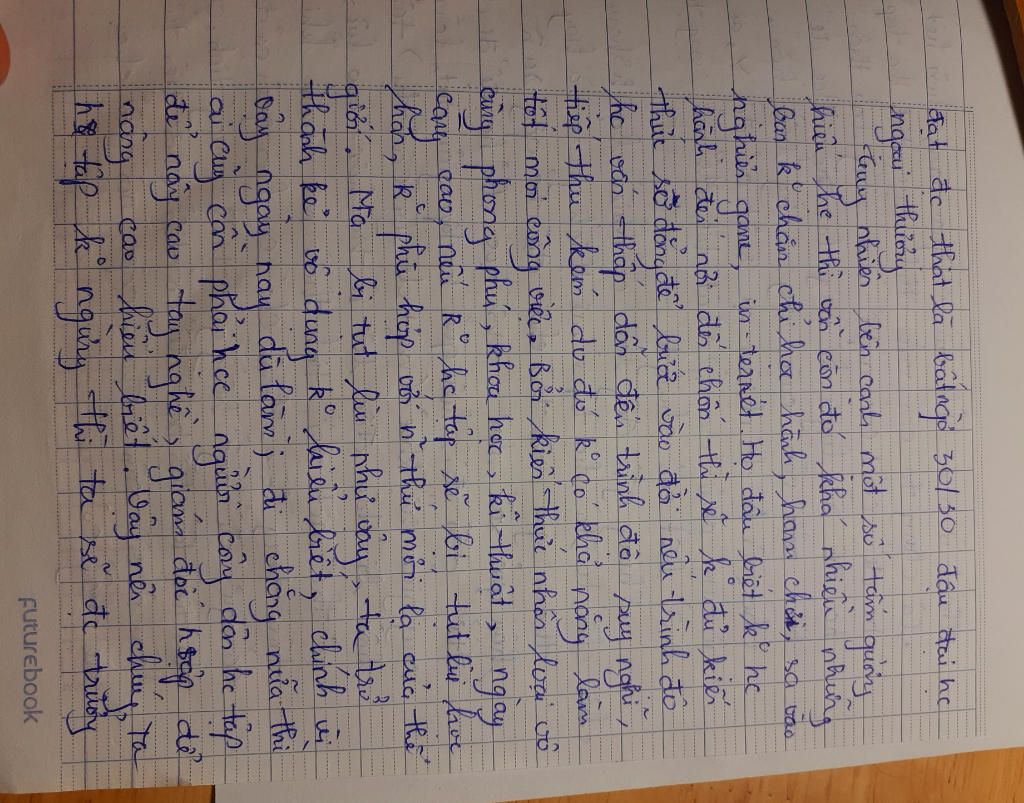 đạt đc thật là bất ngờ 30/30 đậu đại hc
ngoại thương
Tuy nhiên bên cạnh một số tấm gương
hiếu hc thì vẫn còn đó khá nhiều những
bạn k° chăm chỉ học hành, ham chơi, sa vào
nghiện game, in-ternét. Họ đâu biết k° hc
hành đến nơi đến chốn thì sẽ k° đủ kiến
thức sơ đẳng để bước vào đời nếu trình độ
hc vấn thấp dẫn đến trình độ suy nghĩ,
tiếp thu kém do đó k° có khả năng làm
tốt mọi công việc. Bởi kiến thức nhân loại vô
cùng phong phú, khoa học, kĩ thuật, ngày
càng cao, nếu k° hc tập sẽ bị tụt lùi hơn
hẳn, k° phù hợp với n~ thứ mới lạ của thế
giới. Mà bị tụt lùi như vậy, ta trở
thành kẻ vô dụng k° hiểu biết, chính vì
vậy ngày nay dù làm, đi chăng nữa thì
ai cũng cần phải học người công dân hc tập
để nâng cao tay nghề, giám đốc học để
nâng cao hiểu biết. Vậy nên chúng ta
học tập k° ngừng thì ta sẽ đc trưởng
futurebook